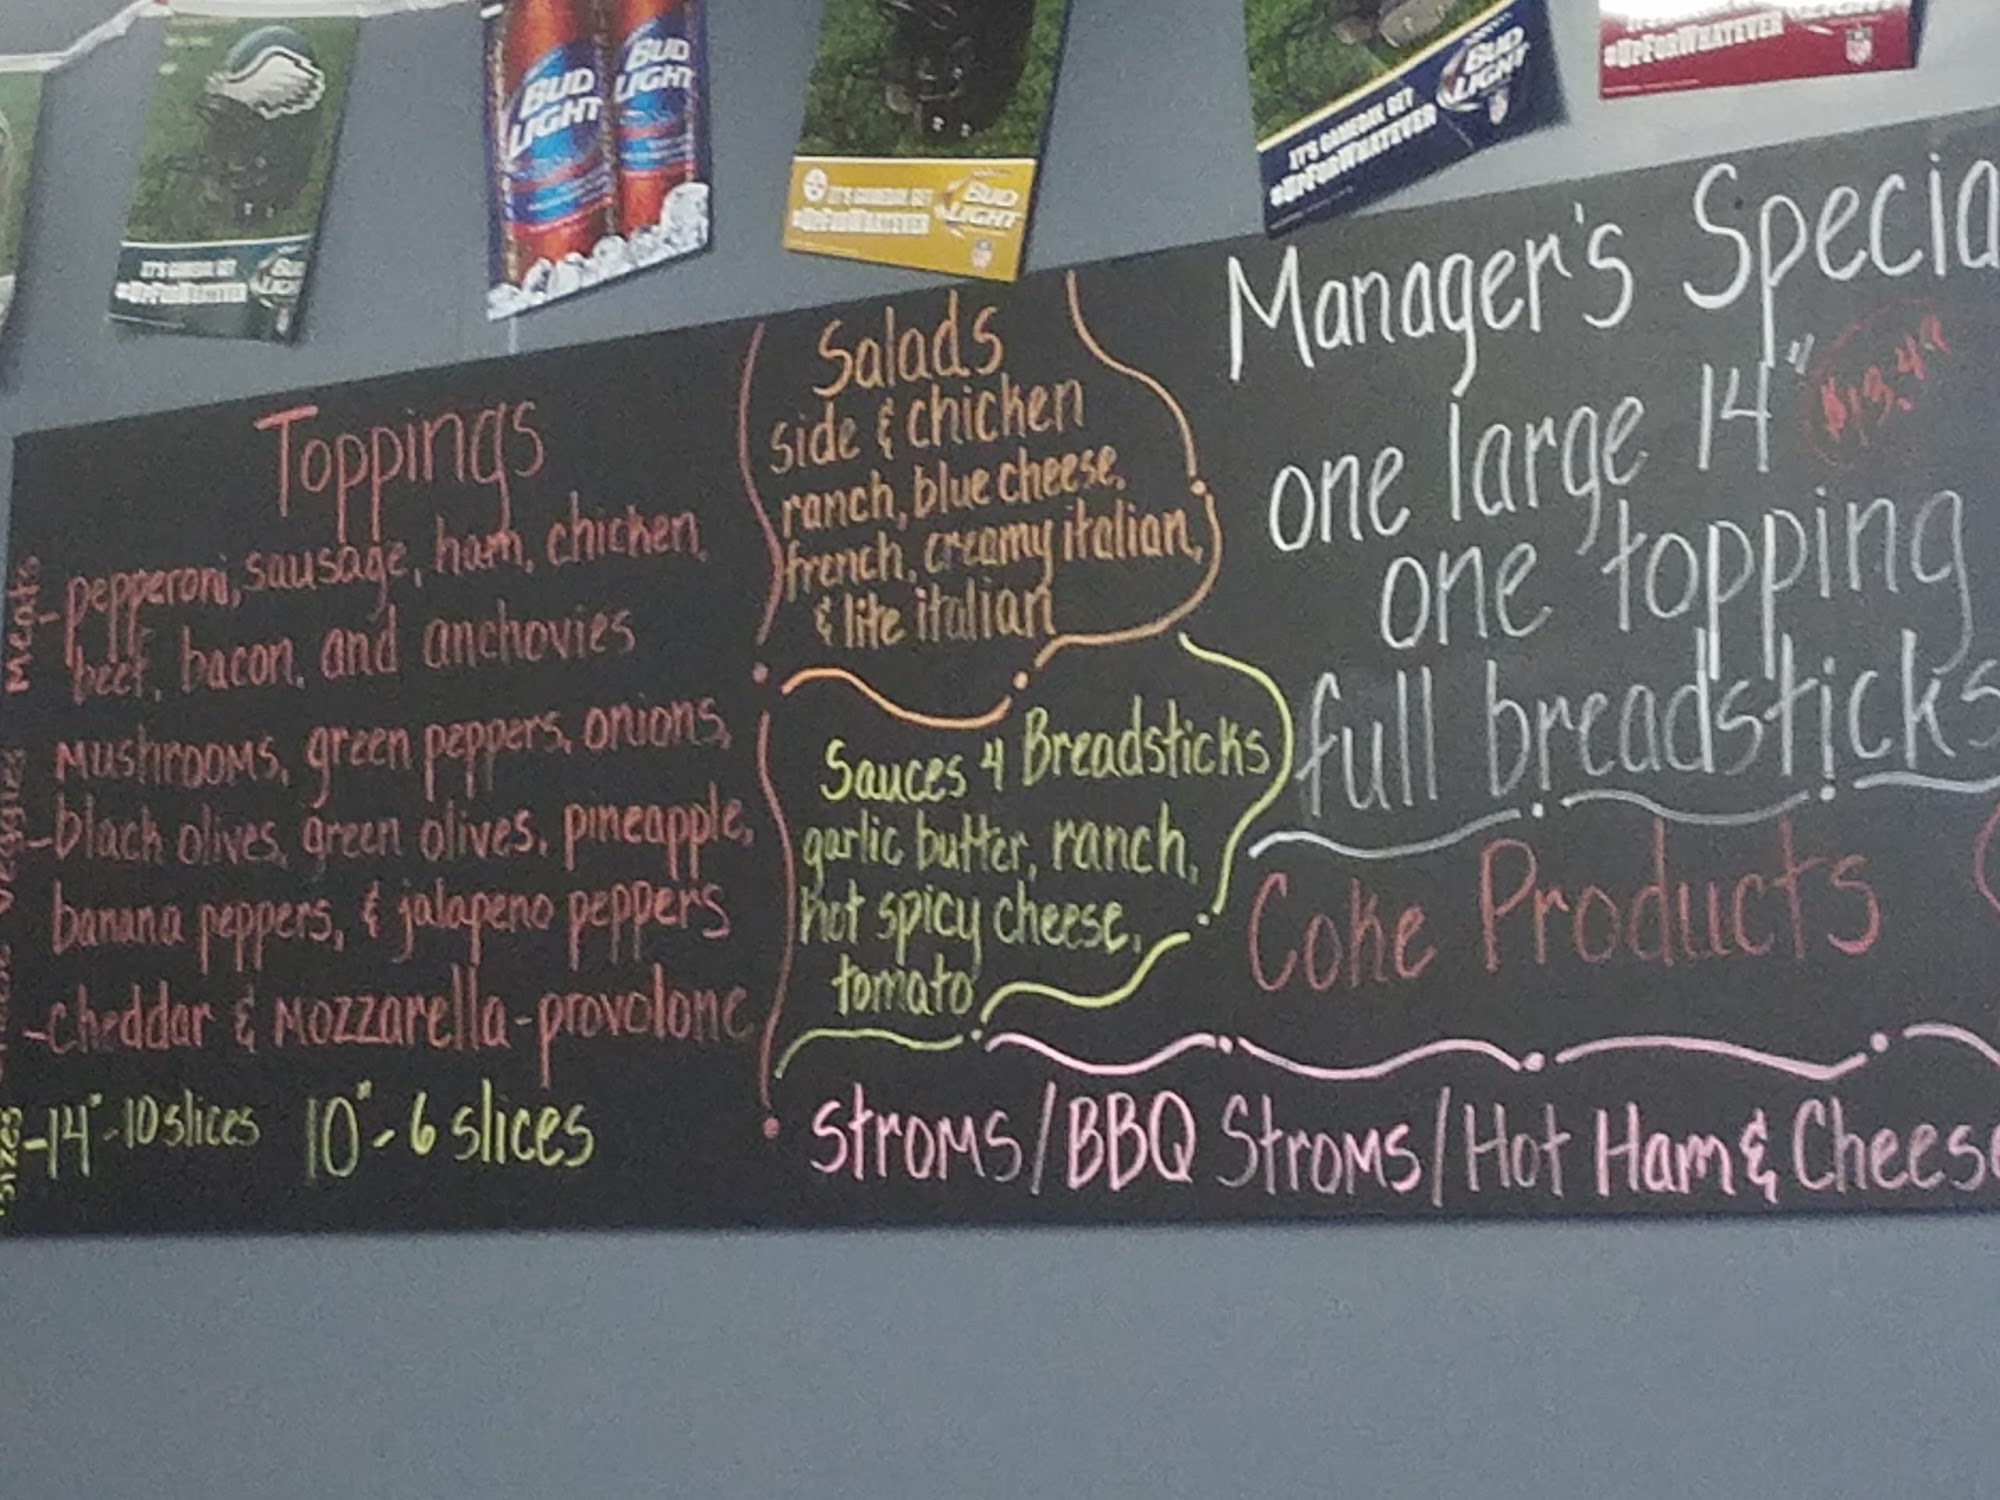 BUD LIGHT
BUD LIGHT
IT'S GAMEDAY. GET
#UPFORWHATEVER
IT'S GAMEDAY. GET
#UPFORWHATEVER
BUD LIGHT
NFL
IT'S GAMEDAY. GET
#UPFORWHATEVER
BUD LIGHT
#UPFORWHATEVER
NFL
Toppings
Meats
- pepperoni, sausage, ham, chicken,
beef, bacon, and anchovies
Veggies
Mushrooms, green peppers, onions,
- black olives, green olives, pineapple,
banana peppers, & jalapeno peppers
- cheddar & Mozzarella - provolone
Sizes
- 14" - 10 slices 10" - 6 slices
Salads
side & chicken
ranch, blue cheese,
french, creamy italian,
& lite italian
Sauces 4 Breadsticks
garlic butter, ranch,
hot spicy cheese,
tomato
Manager's Specia
one large 14" $13.49
one topping
full breadsticks
Coke Products
Stroms / BBQ Stroms / Hot Ham & Cheese